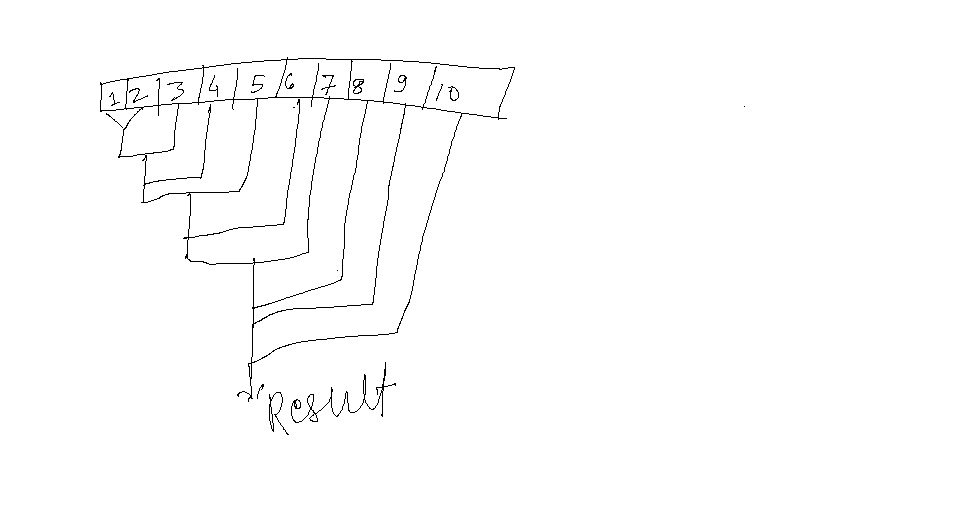 1 2 3 4 5 6 7 8 9 10
Result